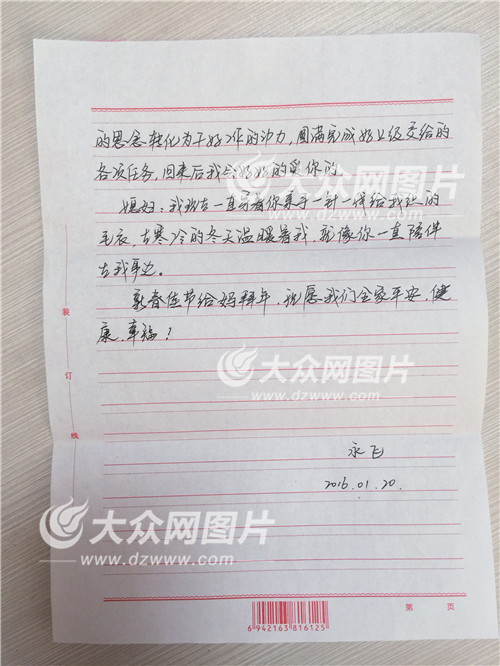 的思念转化为干好工作的动力，圆满完成好上级交给的
各项任务，回来后我会好好的爱你的。
媳妇：我现在一直穿着你亲手一针一线给我织的
毛衣，在寒冷的冬天温暖着我，就像你一直陪伴
在我身边。
新春佳节给妈拜年，祝愿我们全家平安、健
康、幸福！
永飞
2016.01.20.
装
订
线
大众网图片
www.dzwww.com
大众网图片
www.dzwww.com
大众网图片
www.dzwww.com
6942163816125
第 页